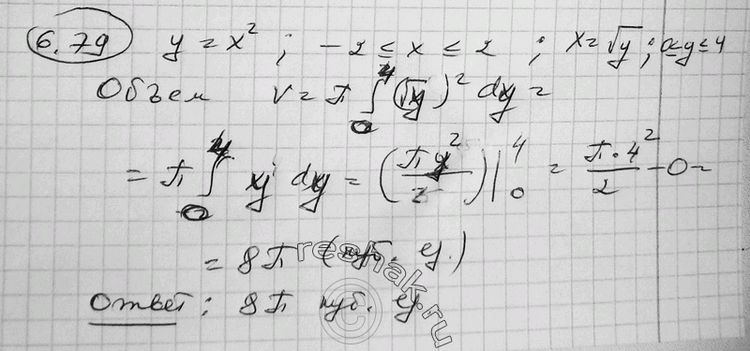 6.79 y = x² ; -2 ≤ x ≤ 2 ; x = √y ; 0 ≤ y ≤ 4
Объем V = π ∫₀⁴ (√y)² dy =
= π ∫₀⁴ y dy = (πy²/2) |₀⁴ = π·4²/2 - 0 =
= 8π (куб. ед.)
Ответ: 8π куб. ед.
reshak.ru